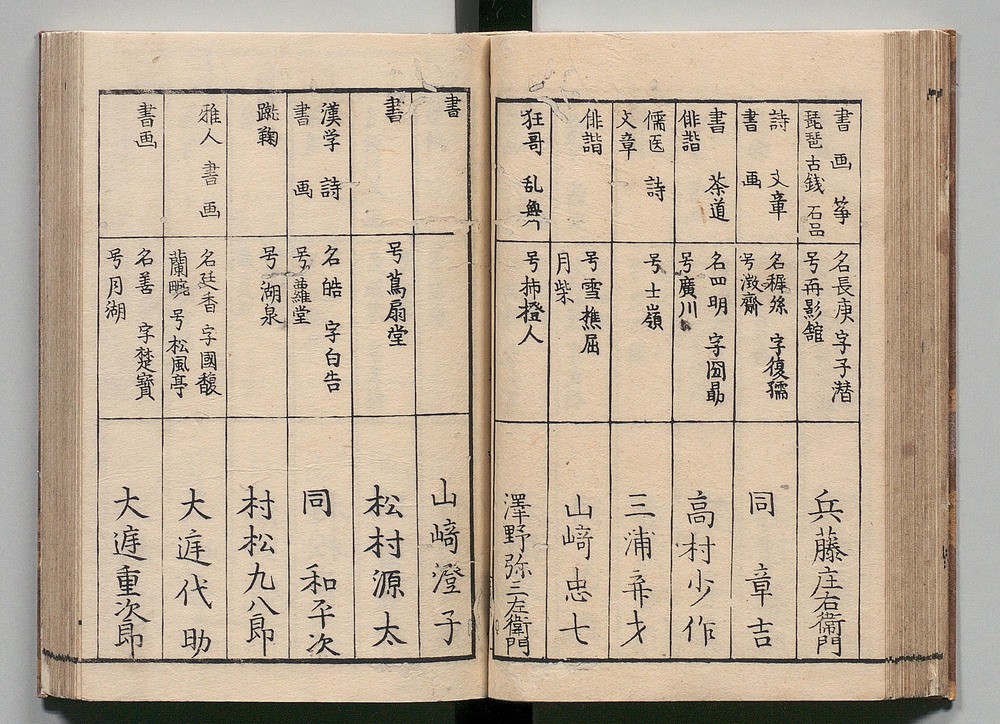 書 画 筝
琵琶 古銭 石品
名長庚 字子潜
号再影舘
兵藤庄右衞門
詩 文章
書 画
名穉絲 字復孺
号澂齋
同 章吉
書 茶道
俳諧
名四明 字圀勗
号廣川
高村少作
儒医 詩
文章
号士嶺
三浦斉才
俳諧
号雪樵屈
月柴
山﨑忠七
狂哥 乱舞
号柿橙人
澤野弥三左衞門
書
山﨑澄子
書
号蔦扇堂
松村源太
漢学 詩
書 画
名皓 字白告
号蘿堂
同 和平次
蹴鞠
号湖泉
村松九八郎
雅人 書 画
名廷香 字國馥
蘭畹 号松風亭
大遅代助
書画
名善 字楚寳
号月湖
大遅重次郎